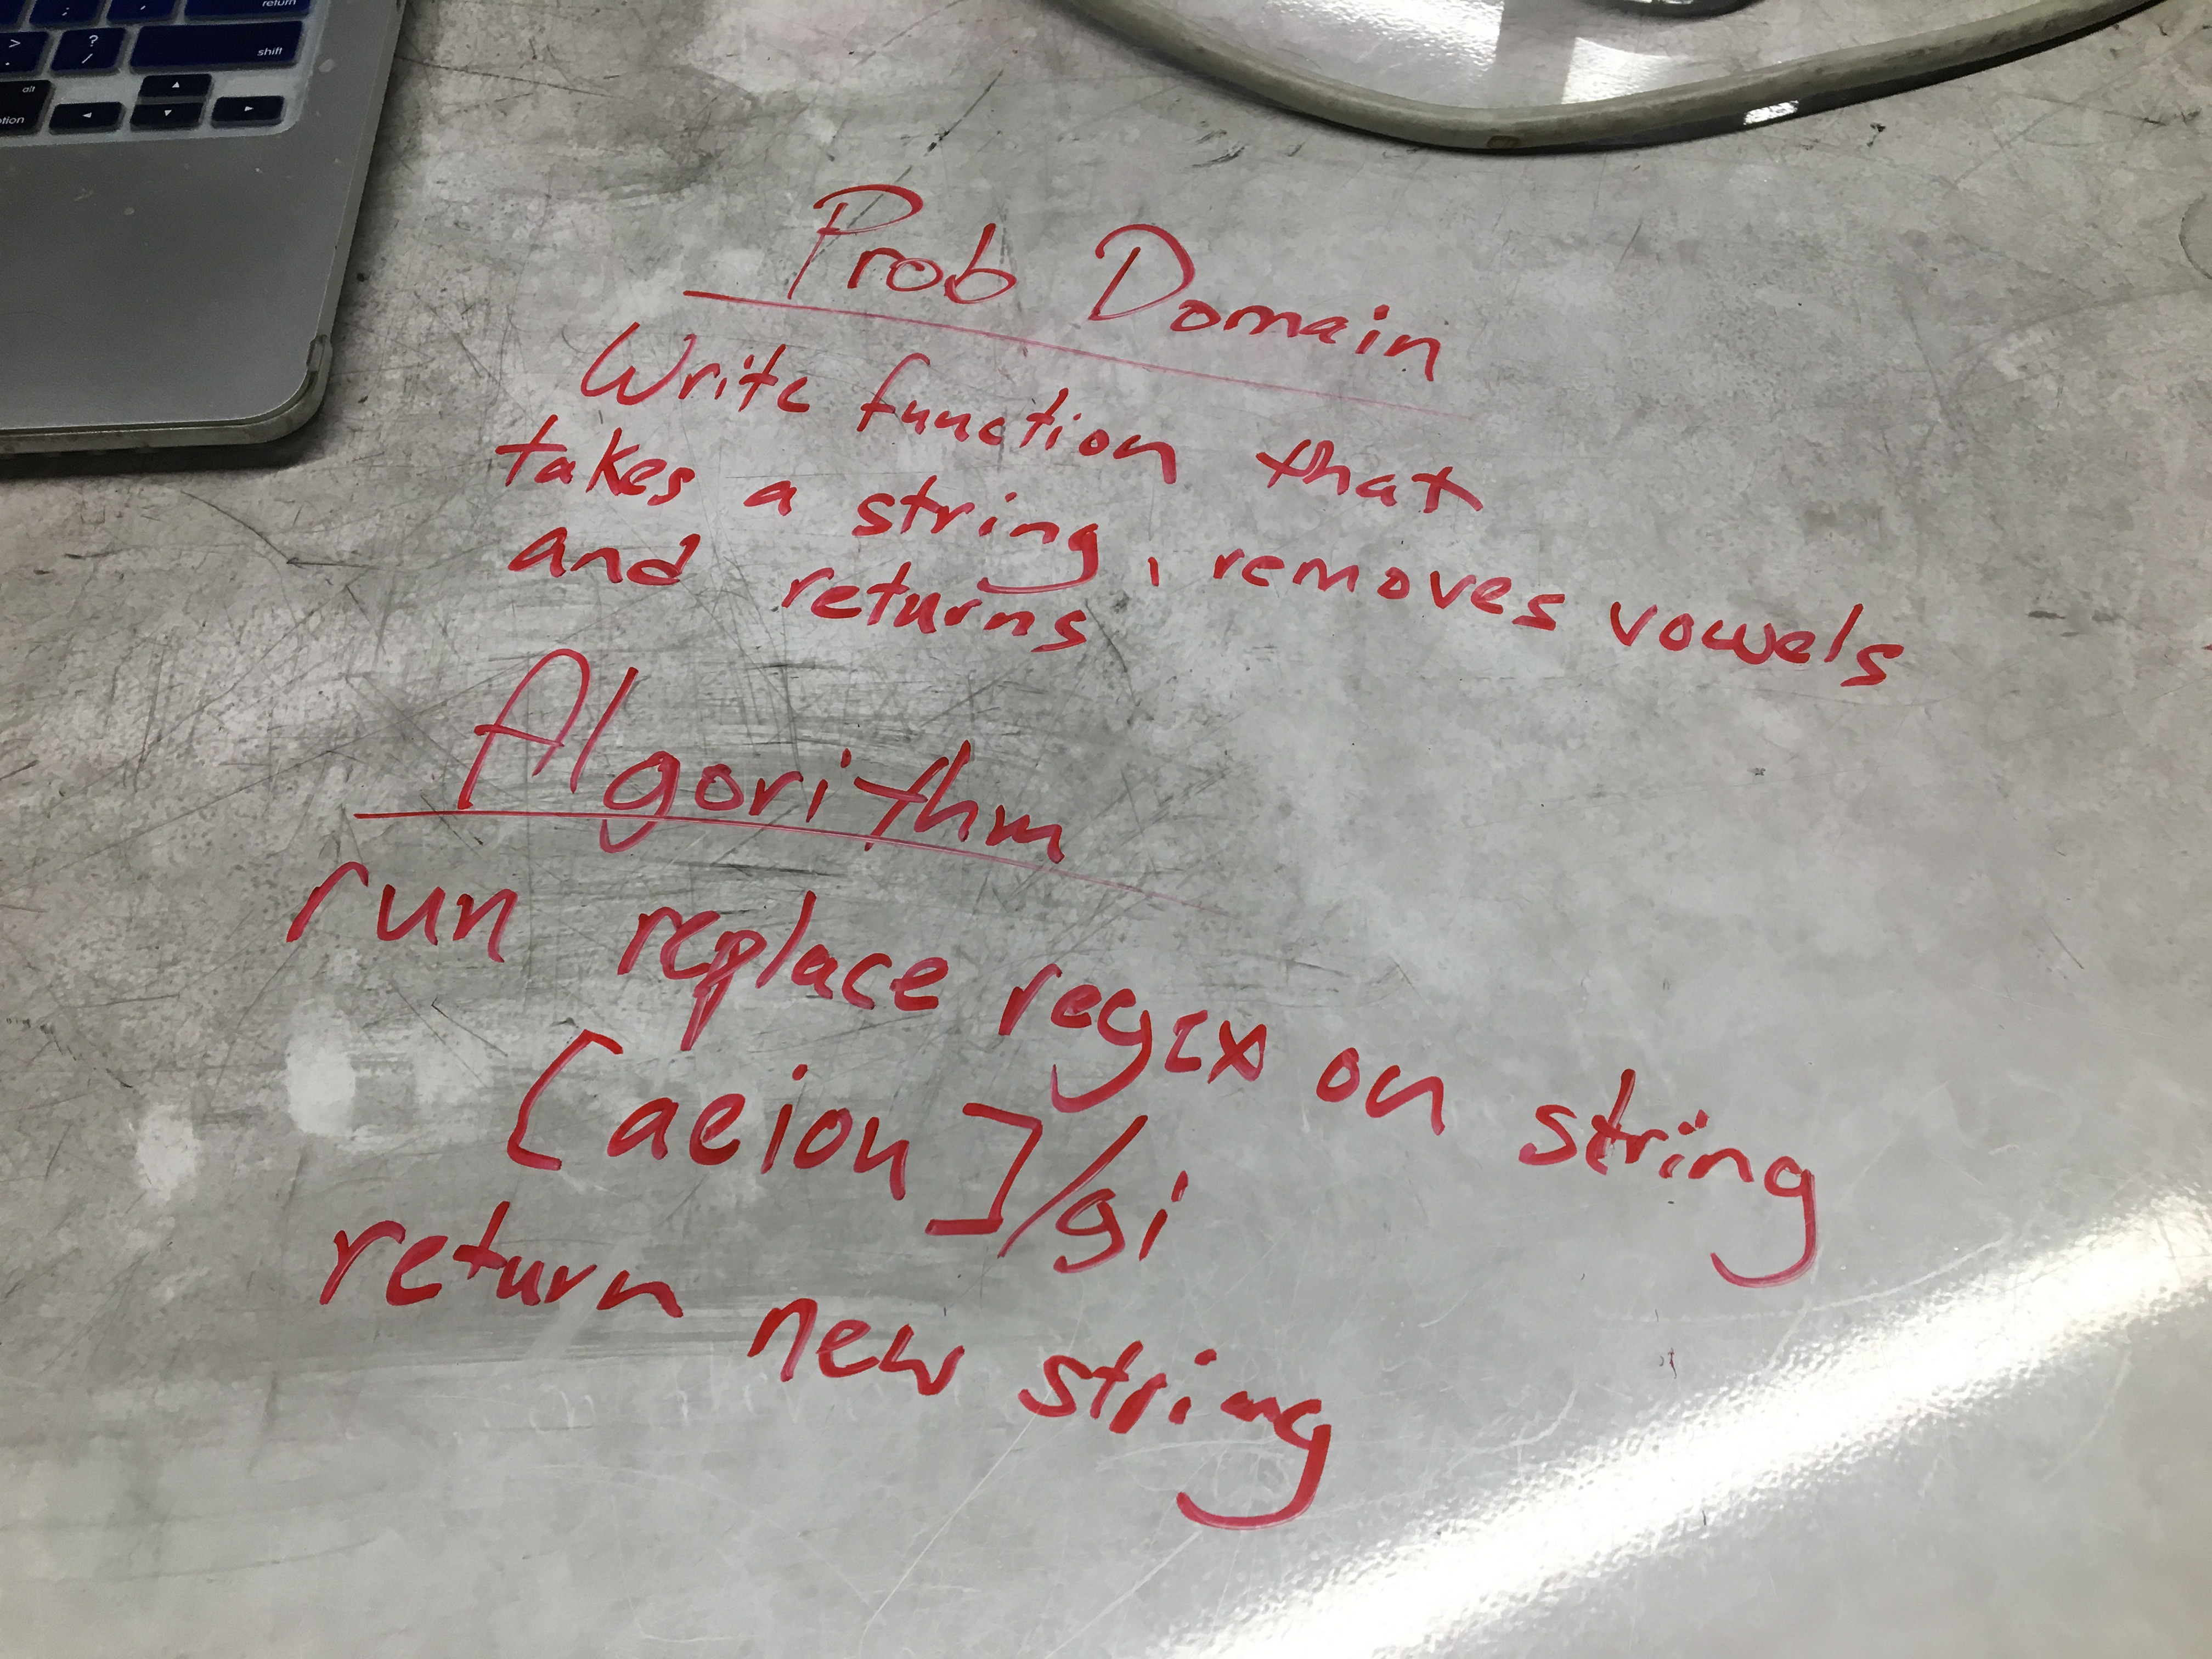 return
shift
> .
? /
: ;
alt
option
Prob Domain
Write function that
takes a string, removes vowels
and returns
Algorithm
run replace regex on string
[aeiou]/gi
return new string